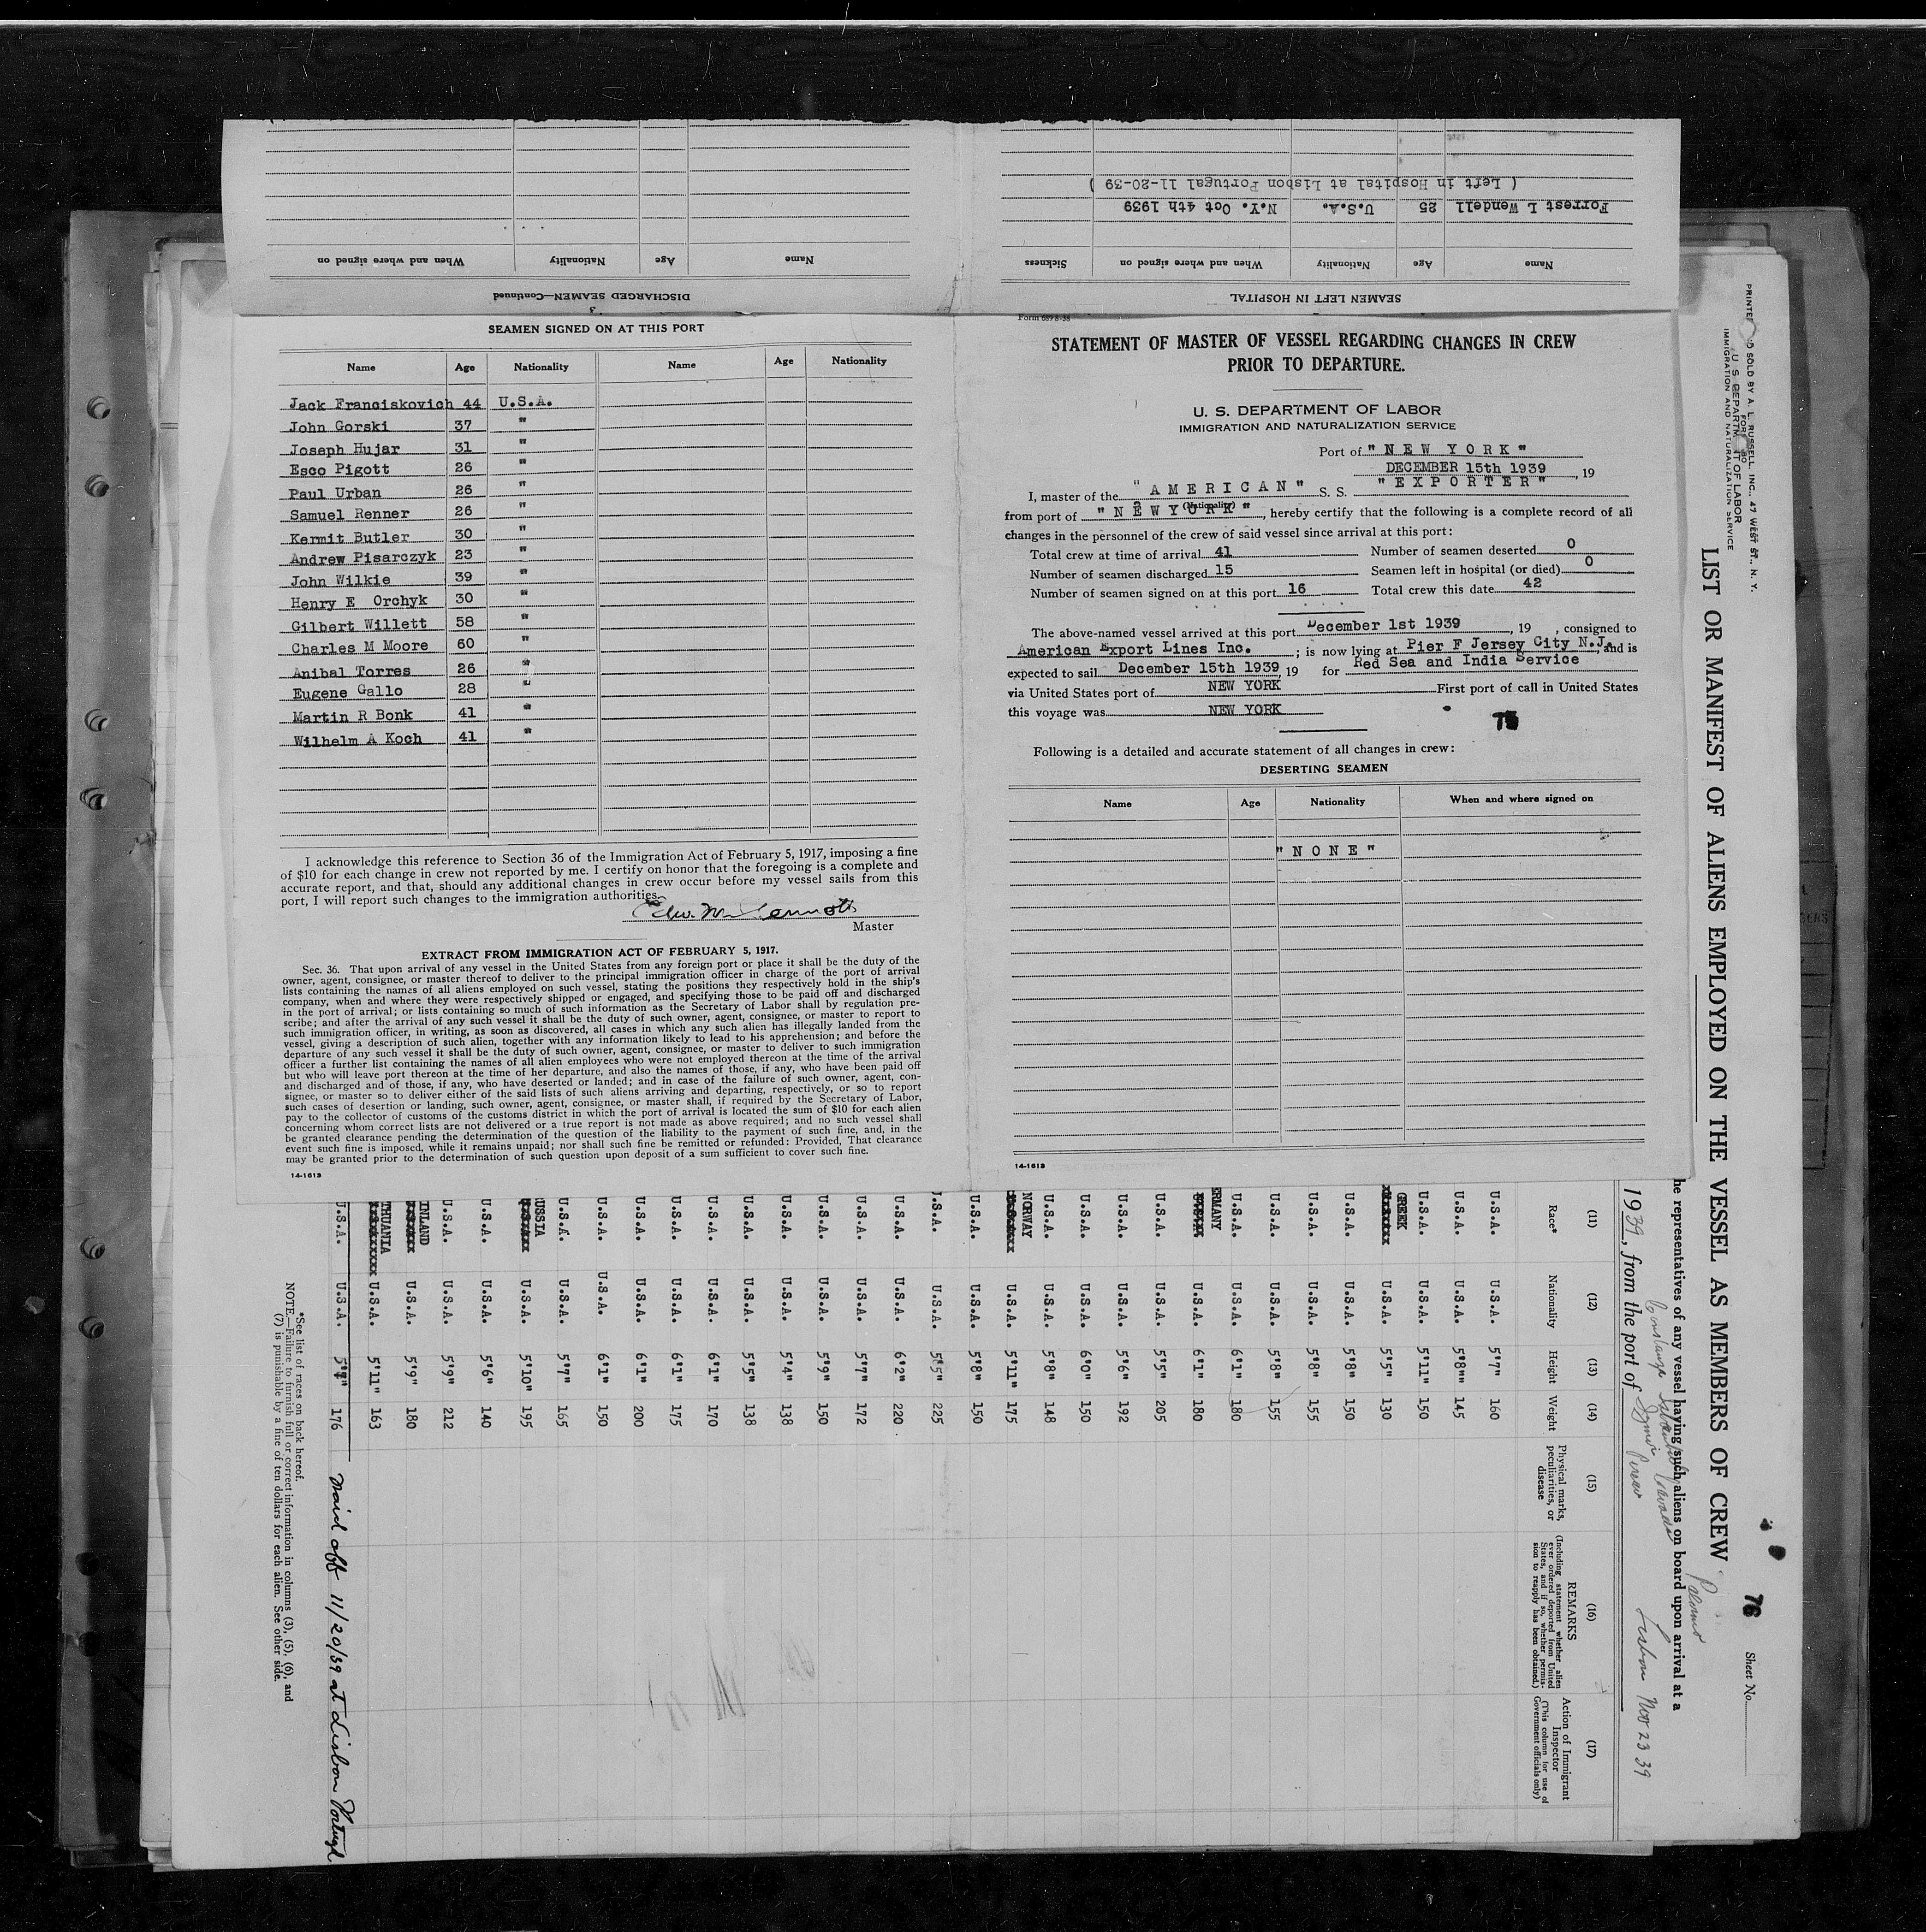 Forrest L Wendell 25 U.S.A. N.Y. Oct 4th 1939
( Left in Hospital at Lisbon Portugal 11-20-39 )
Name Age Nationality When and where signed on Sickness
SEAMEN LEFT IN HOSPITAL
Name Age Nationality When and where signed on
DISCHARGED SEAMEN—Continued
3
SEAMEN SIGNED ON AT THIS PORT
Name Age Nationality Name Age Nationality
Jack Franciskovich 44 U.S.A.
John Gorski 37 "
Joseph Hujar 31 "
Esco Pigott 26 "
Paul Urban 26 "
Samuel Renner 26 "
Kermit Butler 30 "
Andrew Pisarczyk 23 "
John Wilkie 39 "
Henry E Orchyk 30 "
Gilbert Willett 58 "
Charles M Moore 60 "
Anibal Torres 26 "
Eugene Gallo 28 "
Martin R Bonk 41 "
Wilhelm A Koch 41 "
I acknowledge this reference to Section 36 of the Immigration Act of February 5, 1917, imposing a fine
of $10 for each change in crew not reported by me. I certify on honor that the foregoing is a complete and
accurate report, and that, should any additional changes in crew occur before my vessel sails from this
port, I will report such changes to the immigration authorities.
Master
EXTRACT FROM IMMIGRATION ACT OF FEBRUARY 5, 1917.
Sec. 36. That upon arrival of any vessel in the United States from any foreign port or place it shall be the duty of the
owner, agent, consignee, or master thereof to deliver to the principal immigration officer in charge of the port of arrival
lists containing the names of all aliens employed on such vessel, stating the positions they respectively hold in the ship's
company, when and where they were respectively shipped or engaged, and specifying those to be paid off and discharged
in the port of arrival; or lists containing so much of such information as the Secretary of Labor shall by regulation pre-
scribe; and after the arrival of any such vessel it shall be the duty of such owner, agent, consignee, or master to report to
such immigration officer, in writing, as soon as discovered, all cases in which any such alien has illegally landed from the
vessel, giving a description of such alien, together with any information likely to lead to his apprehension; and before the
departure of any such vessel it shall be the duty of such owner, agent, consignee, or master to deliver to such immigration
officer a further list containing the names of all alien employees who were not employed thereon at the time of the arrival
but who will leave port thereon at the time of her departure, and also the names of those, if any, who have been paid off
and discharged and of those, if any, who have deserted or landed; and in case of the failure of such owner, agent, con-
signee, or master so to deliver either of the said lists of such aliens arriving and departing, respectively, or so to report
such cases of desertion or landing, such owner, agent, consignee, or master shall, if required by the Secretary of Labor,
pay to the collector of customs of the customs district in which the port of arrival is located the sum of $10 for each alien
concerning whom correct lists are not delivered or a true report is not made as above required; and no such vessel shall
be granted clearance pending the determination of the question of the liability to the payment of such fine, and, in the
event such fine is imposed, while it remains unpaid; nor shall such fine be remitted or refunded: Provided, That clearance
may be granted prior to the determination of such question upon deposit of a sum sufficient to cover such fine.
14-1613
Form 689 8-38
STATEMENT OF MASTER OF VESSEL REGARDING CHANGES IN CREW
PRIOR TO DEPARTURE.
U. S. DEPARTMENT OF LABOR
IMMIGRATION AND NATURALIZATION SERVICE
Port of "NEW YORK"
DECEMBER 15th 1939, 19
I, master of the "AMERICAN" S. S. "EXPORTER"
(Nationality)
from port of "NEW YORK", hereby certify that the following is a complete record of all
changes in the personnel of the crew of said vessel since arrival at this port:
Total crew at time of arrival 41 Number of seamen deserted 0
Number of seamen discharged 15 Seamen left in hospital (or died) 0
Number of seamen signed on at this port 16 Total crew this date 42
The above-named vessel arrived at this port December 1st 1939, 19 , consigned to
American Export Lines Inc. ; is now lying at Pier F Jersey City N.J., and is
expected to sail December 15th 1939, 19 for Red Sea and India Service
via United States port of NEW YORK First port of call in United States
this voyage was NEW YORK
75
Following is a detailed and accurate statement of all changes in crew:
DESERTING SEAMEN
Name Age Nationality When and where signed on
"NONE"
14-1613
PRINTED AND SOLD BY A. L. RUSSELL, INC., 47 WEST ST., N. Y.
U S DEPARTMENT OF LABOR
IMMIGRATION AND NATURALIZATION SERVICE
76 Sheet No.
LIST OR MANIFEST OF ALIENS EMPLOYED ON THE VESSEL AS MEMBERS OF CREW
Palermo
he representatives of any vessel having such aliens on board upon arrival at a
1939, from the port of Lisbon Nov 23 39
(11) (12) (13) (14) (15) (16) (17)
Race* Nationality Height Weight Physical marks, peculiarities, or disease REMARKS (Including statement whether alien ever ordered deported from United States, and if so, whether permission to reapply has been obtained.) Action of Immigrant Inspector (This column for use of Government officials only)
U.S.A. U.S.A. 5'7" 160
U.S.A. U.S.A. 5'8"" 145
U.S.A. U.S.A. 5'11" 150
GREEK U.S.A. 5'5" 130
U.S.A. U.S.A. 5'8" 150
U.S.A. U.S.A. 5'8" 155
U.S.A. U.S.A. 5'8" 155
U.S.A. U.S.A. 6'1" 180
ERMANY U.S.A. 6'1" 180
U.S.A. U.S.A. 5'5" 205
U.S.A. U.S.A. 5'6" 192
U.S.A. U.S.A. 6'0" 150
U.S.A. U.S.A. 5'8" 148
NORWAY U.S.A. 5'11" 175
U.S.A. U.S.A. 5'8" 150
U.S.A. U.S.A. 5'5" 225
U.S.A. U.S.A. 6'2" 220
U.S.A. U.S.A. 5'7" 172
U.S.A. U.S.A. 5'9" 150
U.S.A. U.S.A. 5'4" 138
U.S.A. U.S.A. 5'5" 138
U.S.A. U.S.A. 6'1" 170
U.S.A. U.S.A. 6'1" 175
U.S.A. U.S.A. 6'1" 200
U.S.A. U.S.A. 6'1" 150
U.S.A. U.S.A. 5'7" 165
USSIA U.S.A. 5'10" 195
U.S.A. U.S.A. 5'6" 140
U.S.A. U.S.A. 5'9" 212
INLAND U.S.A. 5'9" 180
THUANIA U.S.A. 5'11" 163
U.S.A. U.S.A. 5'7" 176 Paid off 11/20/39 at Lisbon Portugal
*See list of races on back hereof.
NOTE.—Failure to furnish full or correct information in columns (3), (5), (6), and
(7) is punishable by a fine of ten dollars for each alien. See other side.